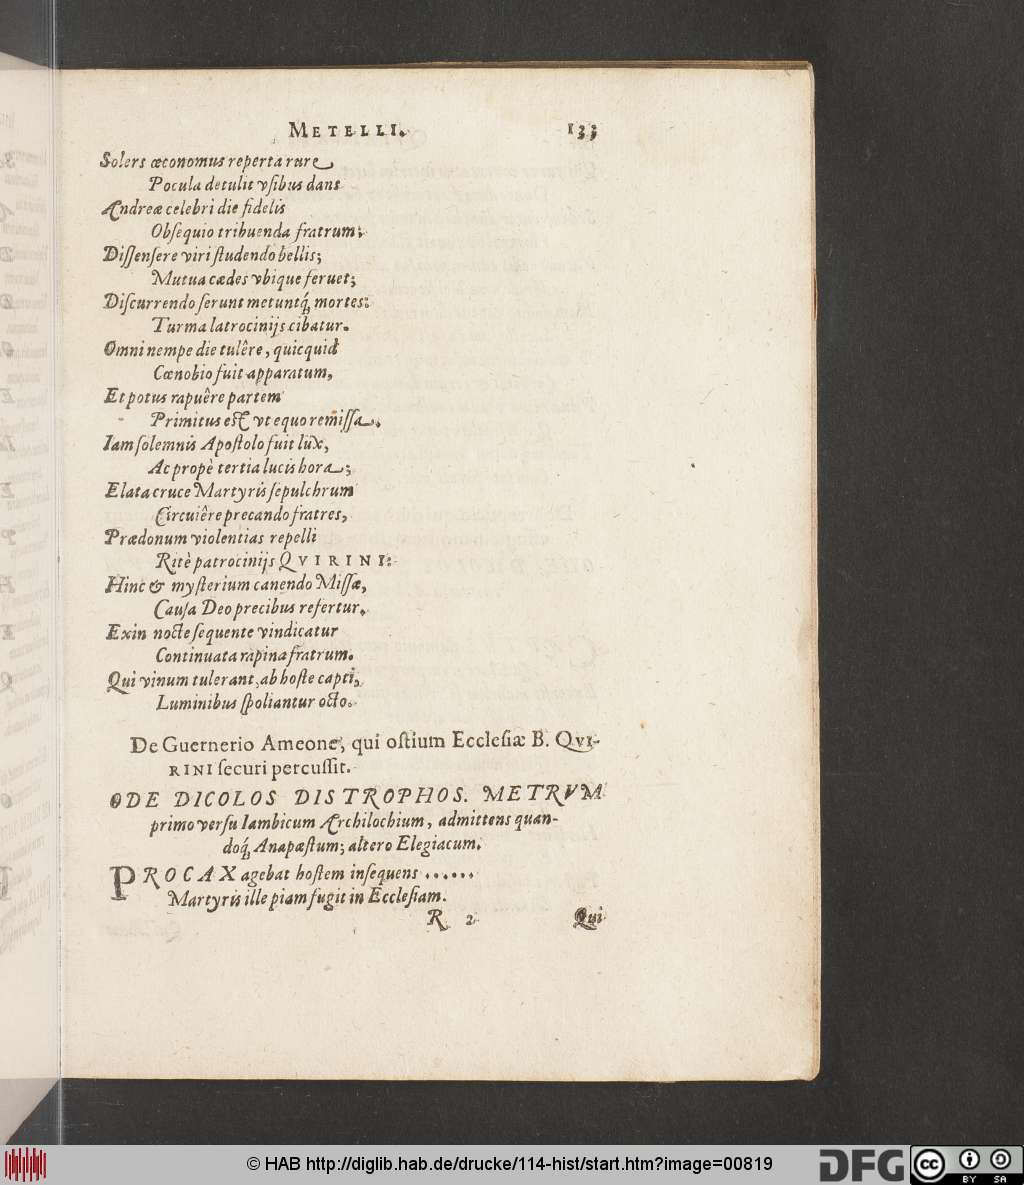 METELLI. 133
Solers œconomus reperta rure
Pocula detulit vſibus dans
Andreæ celebri die fidelis
Obſequio tribuenda fratrum;
Diſſenſere viri ſtudendo bellis;
Mutua cædes vbique feruet;
Diſcurrendo ferunt metuntq́; mortes:
Turma latrocinijs cibatur.
Omni nempe die tulêre, quicquid
Cœnobio fuit apparatum,
Et potus rapuêre partem
Primitus eſt vt equo remiſſa.
Iam ſolemnis Apoſtolo fuit lux,
Ac propè tertia lucis hora;
Elata cruce Martyris ſepulchrum
Circuiêre precando fratres,
Prædonum violentias repelli
Ritè patrocinijs QVIRINI:
Hinc & myſterium canendo Miſſæ,
Cauſa Deo precibus refertur.
Exin nocte ſequente vindicatur
Continuata rapina fratrum.
Qui vinum tulerant, ab hoſte capti,
Luminibus ſpoliantur octo.
De Guernerio Ameone, qui oſtium Eccleſiæ B. QVI-
RINI ſecuri percuſſit.
ODE DICOLOS DISTROPHOS. METRVM
primo verſu Iambicum Archilochium, admittens quan-
doq́; Anapæſtum; altero Elegiacum.
PROCAX agebat hoſtem inſequens ......
Martyris ille piam fugit in Eccleſiam.
R 2 Qui
© HAB http://diglib.hab.de/drucke/114-hist/start.htm?image=00819
DFG
cc BY SA